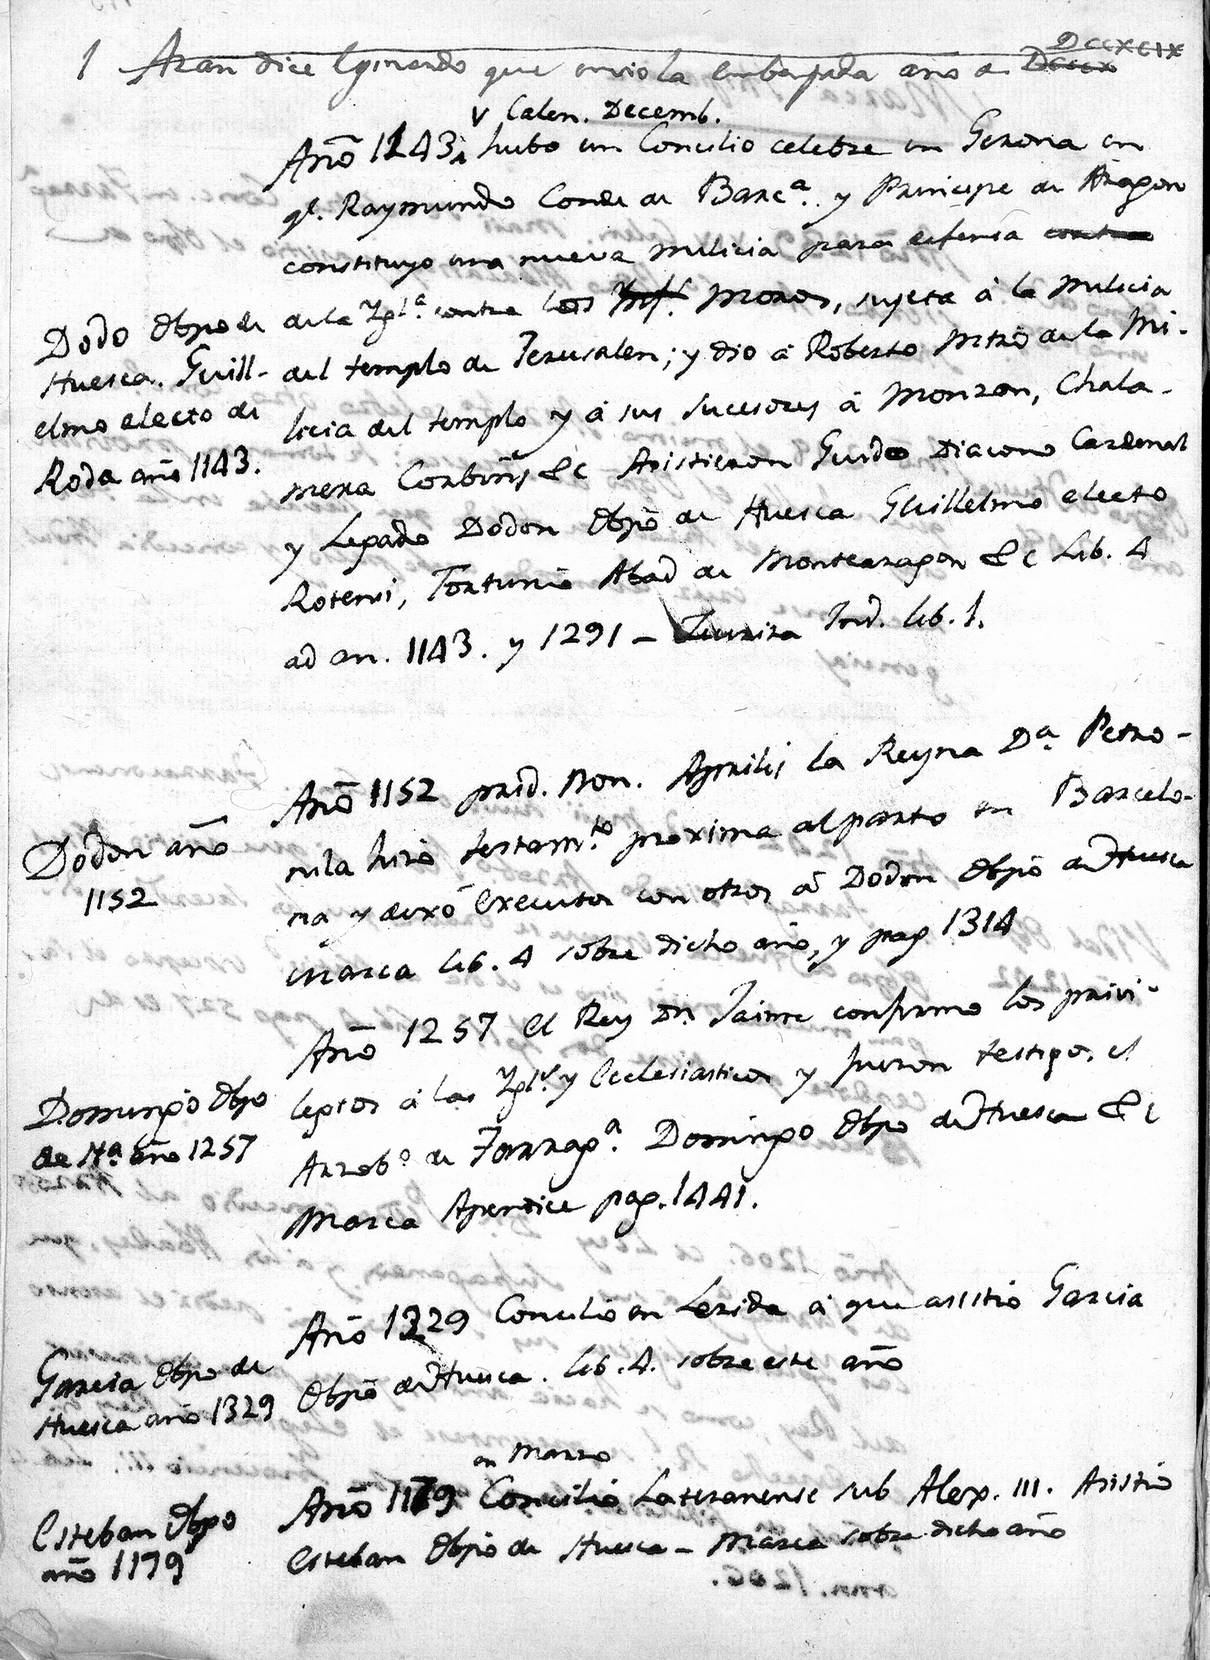 1 Azan dice Eginardo que envio la embaxada año a DCCCX DCCXCIX
V Calen. Decemb.
Año 1143, hubo un Concilio celebre en Gerona en
ql. Raymundo Conde de Barcª. y Principe de Aragon
constituyo una nueva milicia para defensa contra
de la Yglª contra los Inf. moros, sujeta á la milicia
del templo de Jerusalen; y dio á Roberto Mtrô de la Mi-
licia del templo y á sus sucesores á Monzon, Chala-
mera Corbins &c Asistieron Guido Diacono Cardenal
y Legado Dodon Obpô de Huesca Guillelmo electo
Rotensi, Fortunio Abad de Montearagon &c Lib. 4
ad an. 1143. y 1291 - Zurita Ind. lib. 1.
Dodo Obpo de
Huesca. Guill-
elmo electo de
Roda año 1143.
Año 1152 prid. Non. Aprilis la Reyna Dª. Petro-
nila hizo testam.to proxima al parto en Barcelo-
na y dexó Executor con otros á Dodon Obpô de Huesca
Marca lib. 4 sobre dicho año, y pag 1314
Dodon año
1152
Año 1257 el Rey Dn. Jaime confirmo los privi-
legios á las Ygls. y Eclesiasticos y fueron testigos el
Arzobº de Tarragª. Domingo Obpo de Huesca &c
Marca Apendice pag. 1441.
Domingo Obpo
de Hª. año 1257
Año 1229 Concilio en Lerida á que asistio Garcia
Obpô de Huesca. lib. 4. sobre este año
Garcia Obpo de
Huesca año 1329
en Marzo
Año 1179 Concilio Lateranense sub Alex. III. Asistio
Esteban Obpô de Huesca - Marca sobre dicho año
Esteban Obpo
año 1179